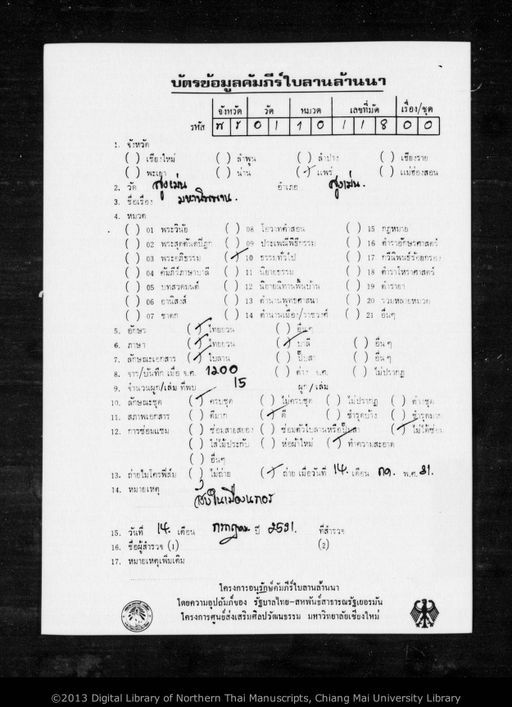 บัตรข้อมูลคัมภีร์ใบลานล้านนา
จังหวัด วัด หมวด เลขที่มัด เรื่อง/ชุด
รหัส พ ร 0 1 1 0 1 1 8 0 0
1. จังหวัด
( ) เชียงใหม่ ( ) ลำพูน ( ) ลำปาง ( ) เชียงราย
( ) พะเยา ( ) น่าน (/) แพร่ ( ) แม่ฮ่องสอน
2. วัด สูงเม่น อำเภอ สูงเม่น.
3. ชื่อเรื่อง มหานิพพาน.
4. หมวด
( ) 01 พระวินัย ( ) 08 โอวาทคำสอน ( ) 15 กฎหมาย
( ) 02 พระสุตตันตปิฎก ( ) 09 ประเพณีพิธีกรรม ( ) 16 ตำราอักษรศาสตร์
( ) 03 พระอภิธรรม (/) 10 ธรรมทั่วไป ( ) 17 กวีนิพนธ์ร้อยกรอง
( ) 04 คัมภีร์ภาษาบาลี ( ) 11 นิยายธรรม ( ) 18 ตำราโหราศาสตร์
( ) 05 บทสวดมนต์ ( ) 12 นิยายนิทานพื้นบ้าน ( ) 19 ตำรายา
( ) 06 อานิสงส์ ( ) 13 ตำนานพุทธศาสนา ( ) 20 รวมหลายหมวด
( ) 07 ชาดก ( ) 14 ตำนานเมือง/ราชวงศ์ ( ) 21 อื่นๆ
5. อักษร (/) ไทยยวน ( ) อื่นๆ
6. ภาษา (/) ไทยยวน (/) บาลี ( ) อื่นๆ
7. ลักษณะเอกสาร (/) ใบลาน ( ) ปั๊บสา ( ) อื่นๆ
8. จาร/บันทึก เมื่อ จ.ศ. 1200 ( ) ไม่ปรากฏ
9. จำนวนผูก/เล่ม ที่พบ 15 ผูก/เล่ม
10. ลักษณะชุด (/) ครบชุด ( ) ไม่ครบชุด ( ) ไม่ปรากฏ ( ) ค่าชุด
11. สภาพเอกสาร ( ) ดีมาก (/) ดี ( ) ชำรุดบ้าง ( ) ชำรุดมาก
12. การซ่อมแซม ( ) ซ่อมสายสยอง ( ) ซ่อมตัวใบลานหรือปั๊บสา (/) ไม่ได้ซ่อม
( ) ใส่ไม้ประกับ ( ) ห่อผ้าใหม่ (/) ทำความสะอาด
( ) อื่นๆ
13. ถ่ายไมโครฟิล์ม ( ) ไม่ถ่าย (/) ถ่าย เมื่อวันที่ 14. เดือน กค. พ.ศ. 31.
14. หมายเหตุ
15. วันที่ 14. เดือน กรกฎาคม ปี 2531. ที่สำรวจ
16. ชื่อผู้สำรวจ (1) (2)
17. หมายเหตุเพิ่มเติม
โครงการอนุรักษ์คัมภีร์ใบลานล้านนา
โดยความอุปถัมภ์ของ รัฐบาลไทย-สหพันธ์สาธารณรัฐเยอรมัน
โครงการศูนย์ส่งเสริมศิลปวัฒนธรรม มหาวิทยาลัยเชียงใหม่
©2013 Digital Library of Northern Thai Manuscripts, Chiang Mai University Library